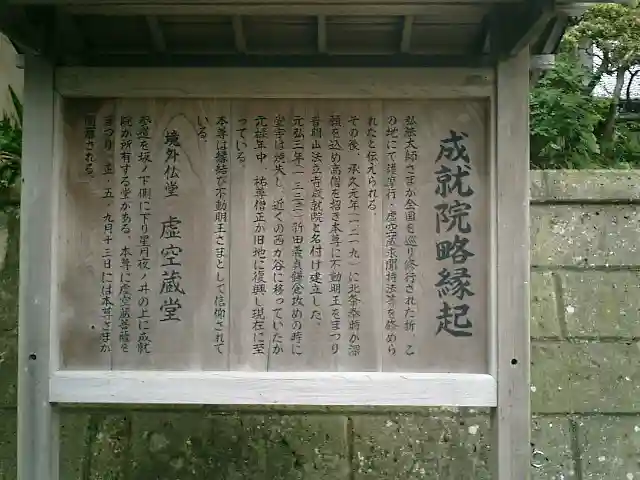 成就院略縁起
弘法大師さまが全国を巡り修行された折、こ
の地にて護摩行・虚空蔵求聞持法等を修めら
れたと伝えられる。
その後、承久元年(一二一九)に北条泰時が深
願を込め高僧を招き本尊に不動明王をまつり
普明山法立寺成就院と名付け建立した。
元弘三年(一三三三)新田義貞鎌倉攻めの時に
堂宇は焼失し、近くの西が谷に移っていたが
元禄年中 祐尊僧正が旧地に復興し現在に至
っている。
本尊は縁結び不動明王さまとして信仰されて
いる。
境外仏堂 虚空蔵堂
参道を坂ノ下側に下り星月夜ノ井の上に成就
院が所有する堂がある。本尊に虚空蔵菩薩を
まつり、正、五、九月十三日には本尊さまが
開扉される。